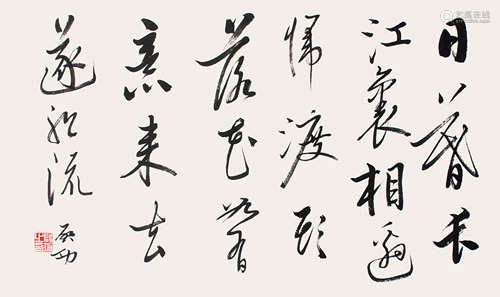 日暮長
江裏相邀
歸渡頭
落花如有
意来去
逐船流
啟功